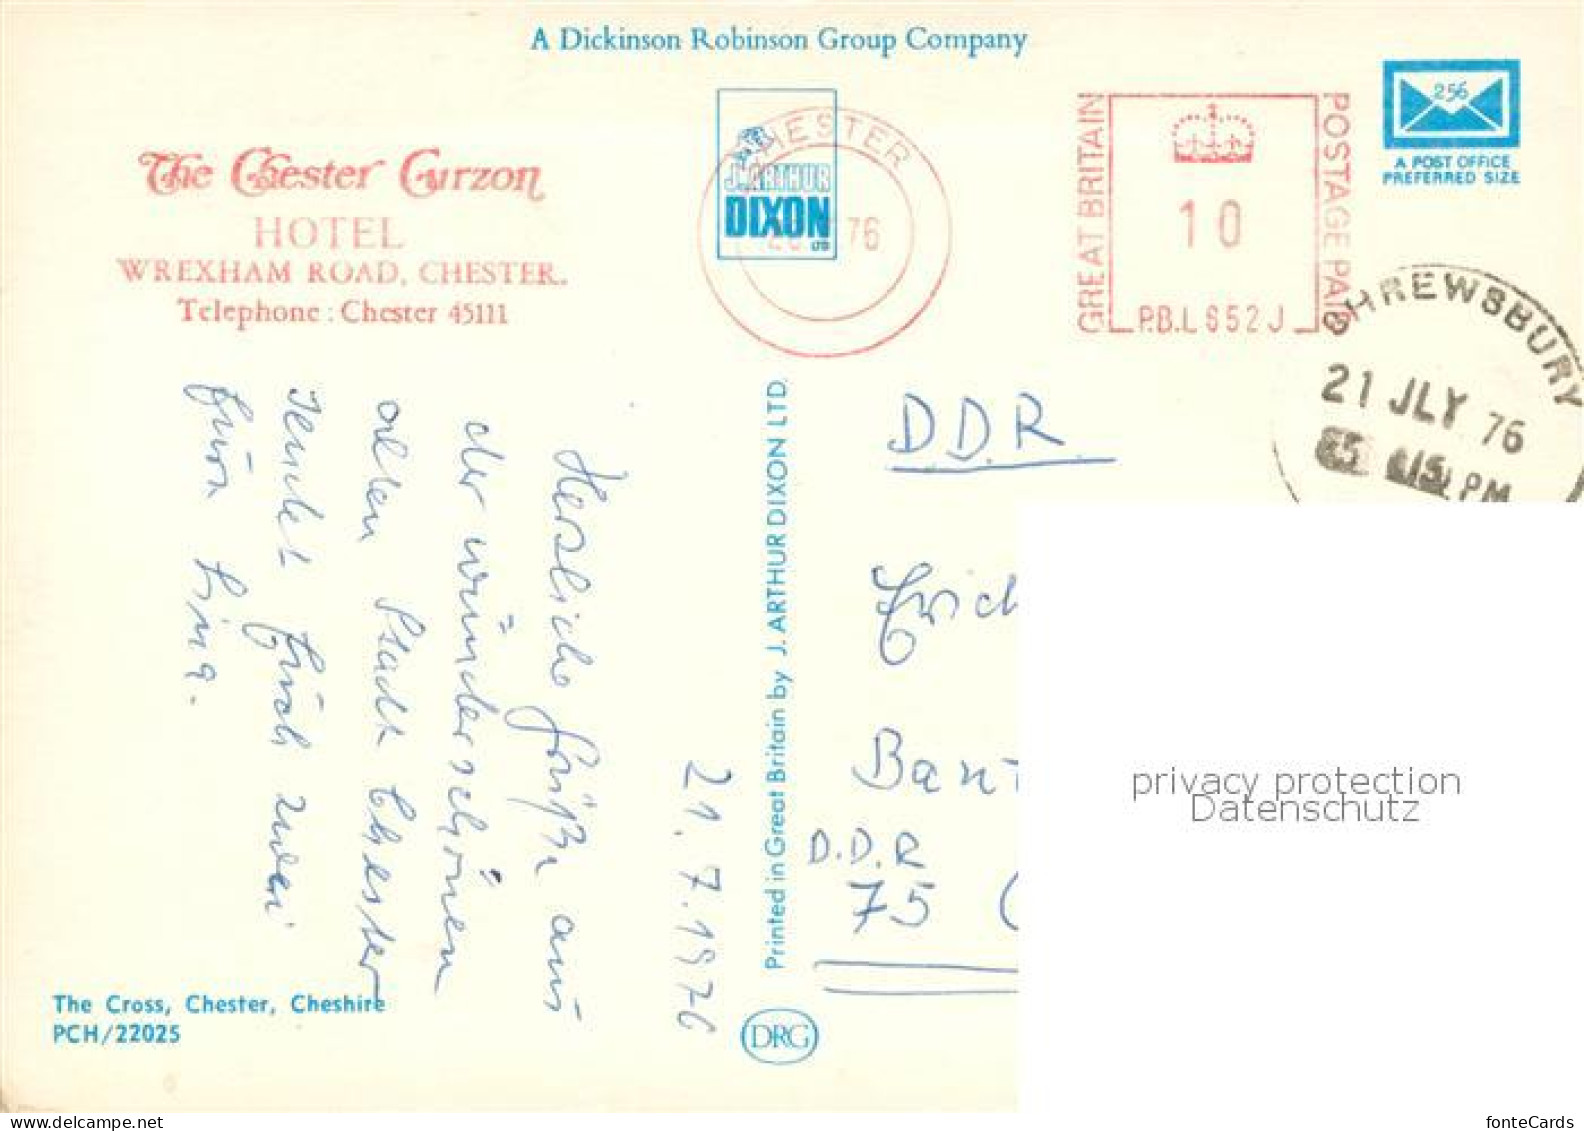 A Dickinson Robinson Group Company
The Chester Curzon
HOTEL
WREXHAM ROAD, CHESTER.
Telephone : Chester 45111
CHESTER
76
J. ARTHUR
DIXON
LTD
GREAT BRITAIN
10
P.B.L 652 J
POSTAGE PAID
256
A POST OFFICE
PREFERRED SIZE
SHREWSBURY
21 JLY 76
PM
21.7.1976
Herzliche Grüße aus
der wunderschönen
alten Stadt Chester
sendet
Printed in Great Britain by J. ARTHUR DIXON LTD.
D.D.R.
Erich
D.D.R
75
The Cross, Chester, Cheshire
PCH/22025
DRG
privacy protection
Datenschutz
fonteCards